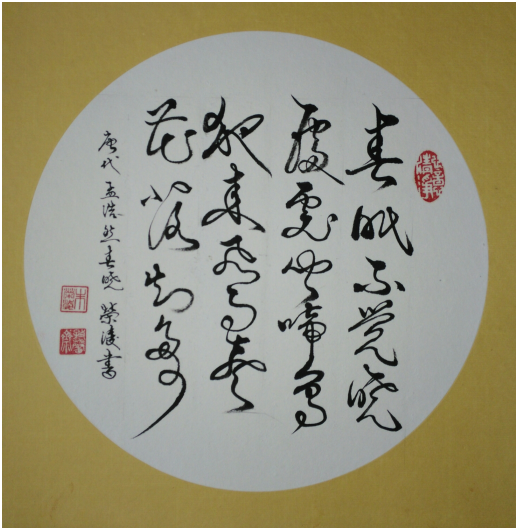 春眠不觉晓
處處闻啼鸟
夜来风雨声
花落知多少
唐代孟浩然春晓 榮凌書